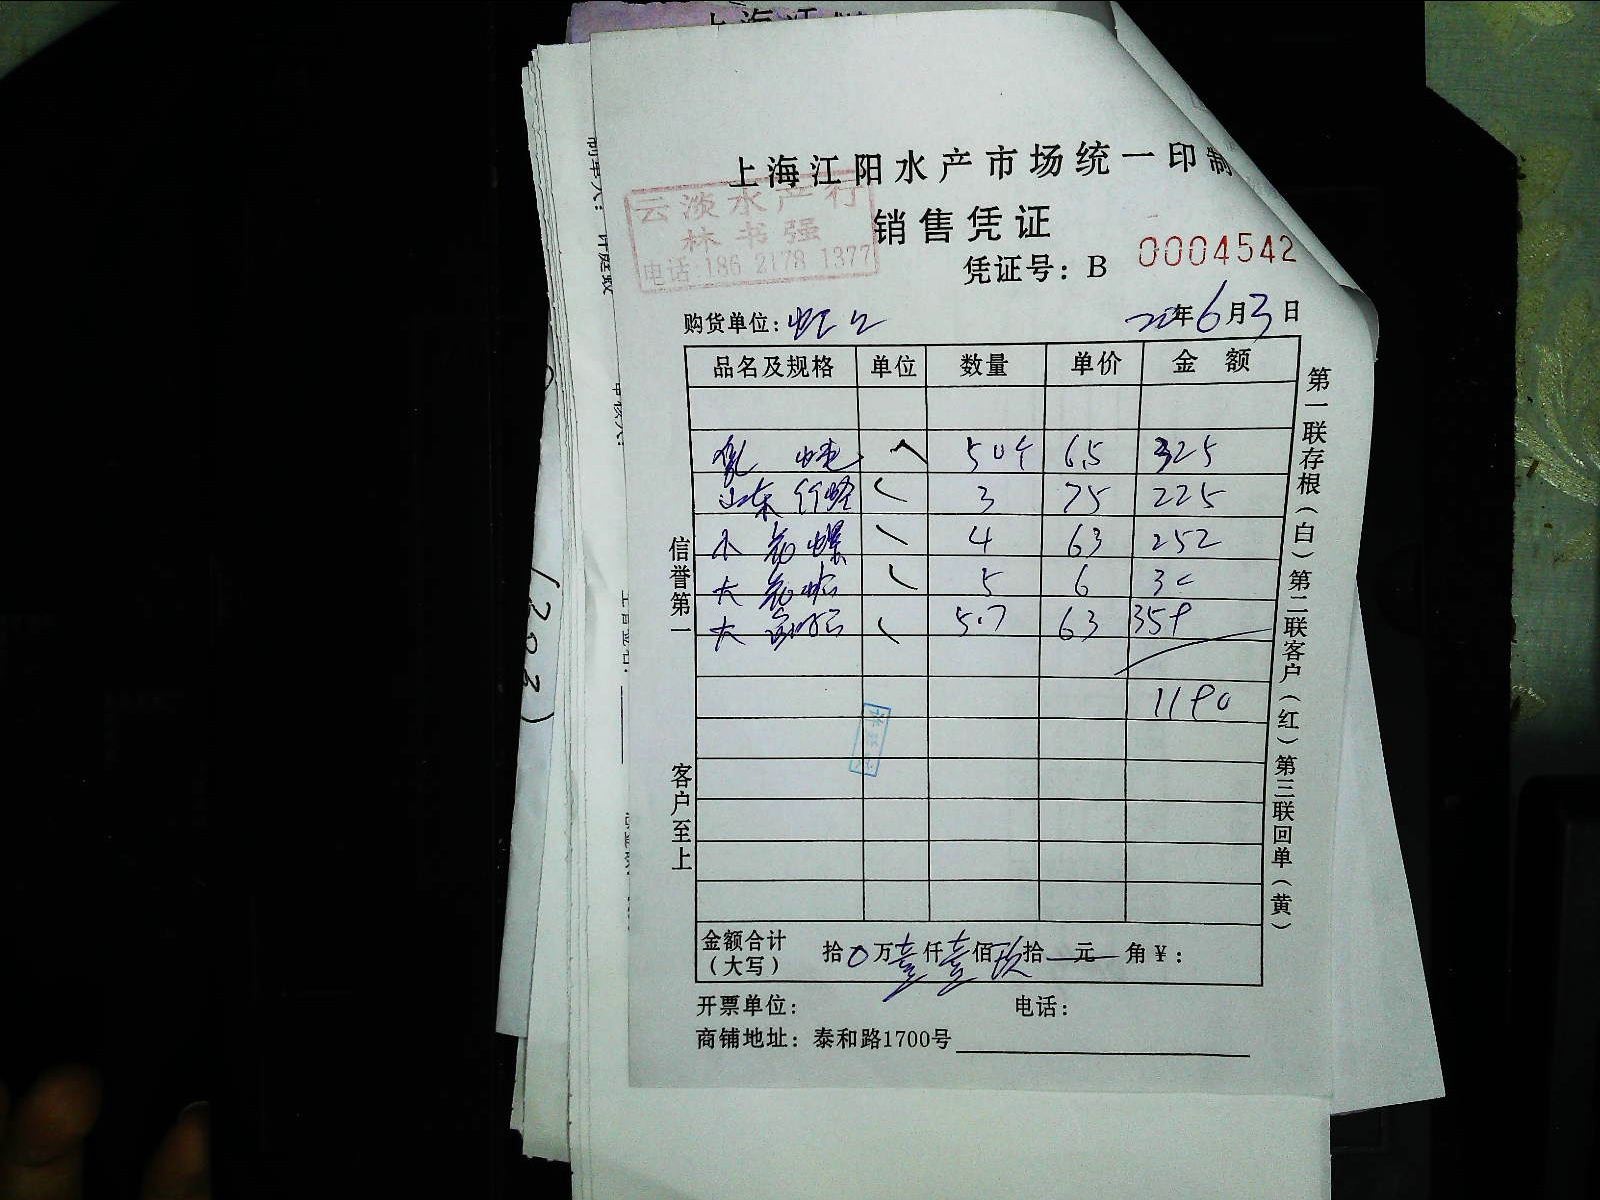 上海江阳水产市场统一印制
云淡水产行
林书强
电话:186 2178 1377
销售凭证
凭证号：B 0004542
购货单位: 虹口 年6月3日
品名及规格 单位 数量 单价 金额
50个 6.5 325
山东 3 75 225
小花螺 4 63 252
大花蛤 5 6 30
大 5.7 63 359
1190
金额合计（大写） 拾0万壹仟壹佰玖拾一元 角¥：
开票单位： 电话：
商铺地址：泰和路1700号
信誉第一
客户至上
第一联存根（白）第二联客户（红）第三联回单（黄）
(203)